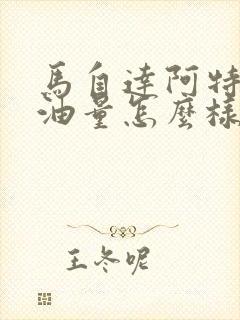 馬自達阿特
油量怎麼樣
王冬呢